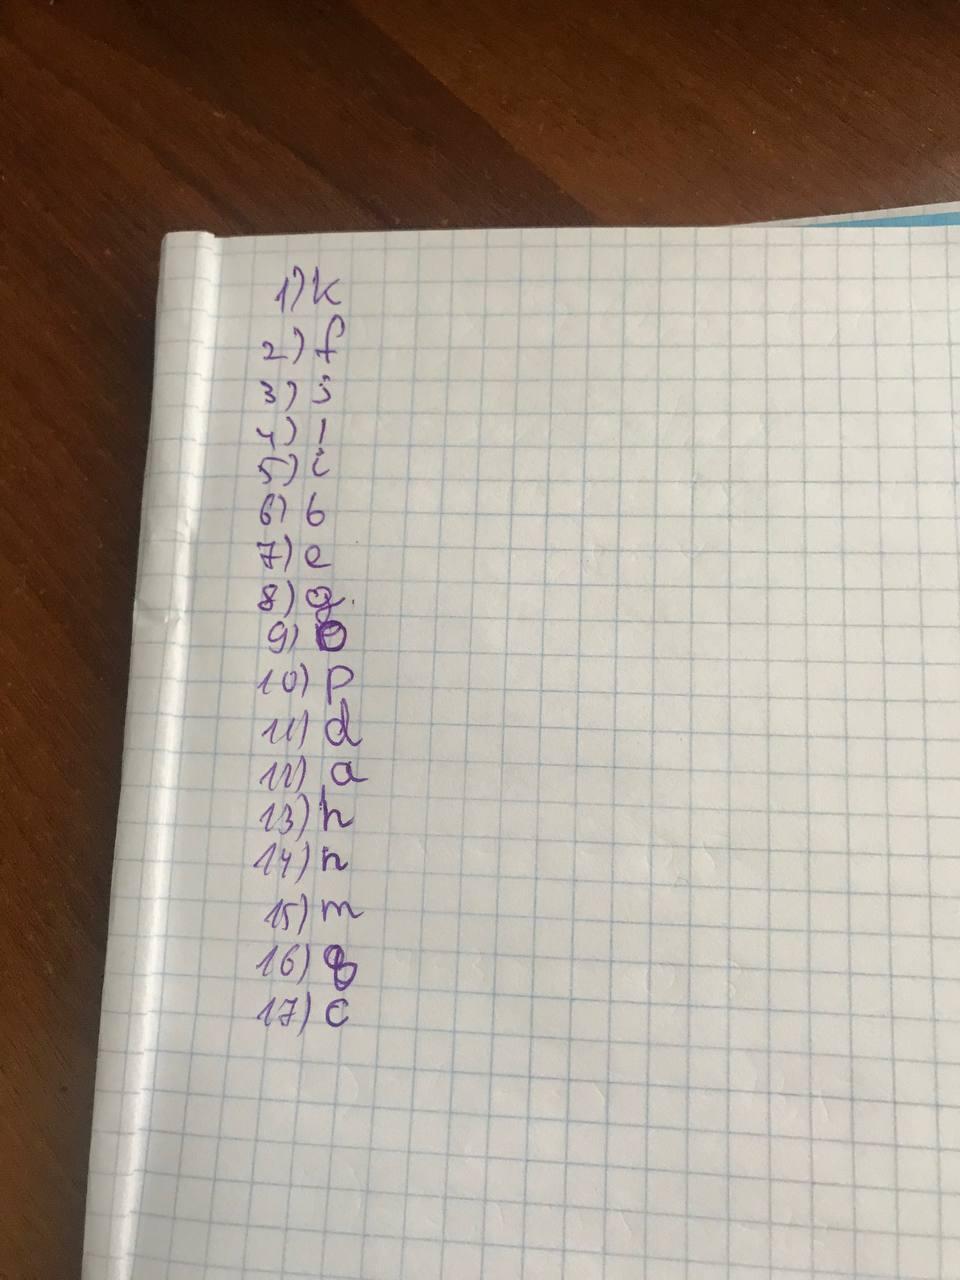 1) k
2) f
3) j
4) l
5) i
6) b
7) e
8) g.
9) o
10) p
11) d
12) a
13) h
14) n
15) m
16) q
17) c